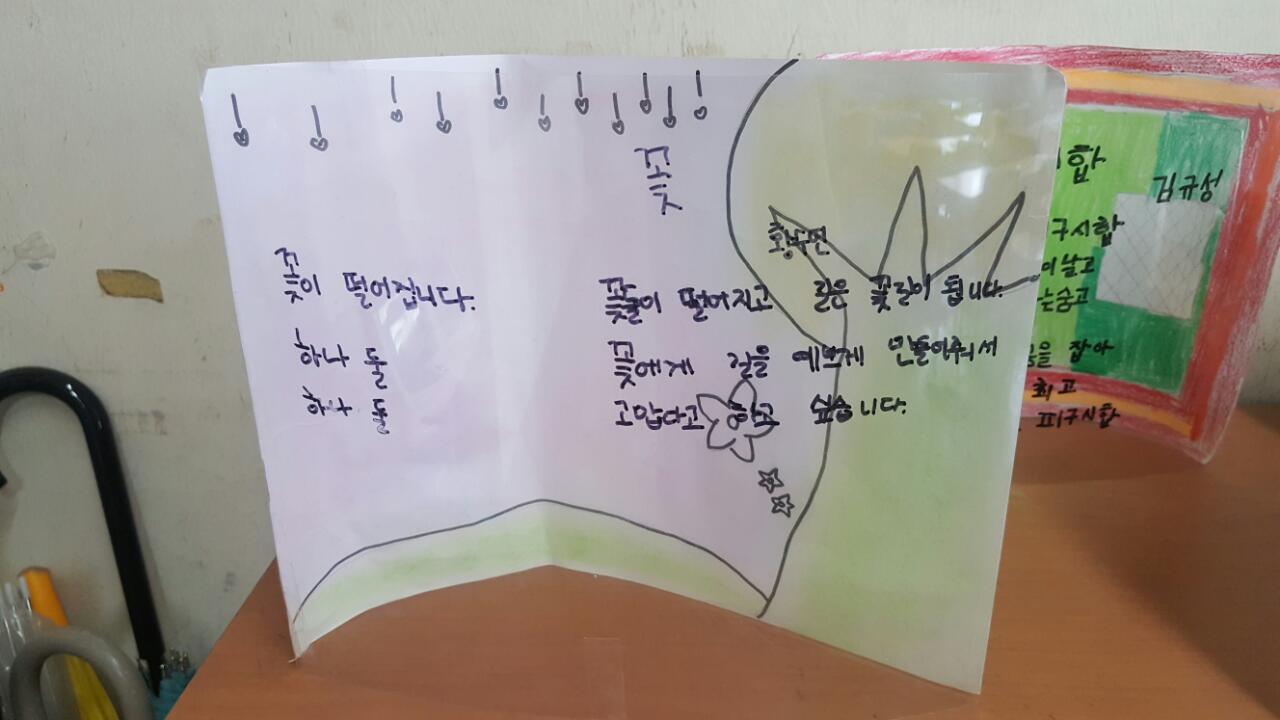 꽃
꽃이 떨어집니다.
하나 둘
하나 둘
꽃들이 떨어지고 길은 꽃길이 됩니다.
꽃에게 길을 예쁘게 만들어줘서
고맙다고 하고 싶습니다.
합
김규성
구시합
이날고
는숨고
을 잡아
최고
피구시합